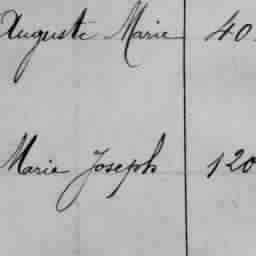 Auguste Marie 40
Marie Joseph 120